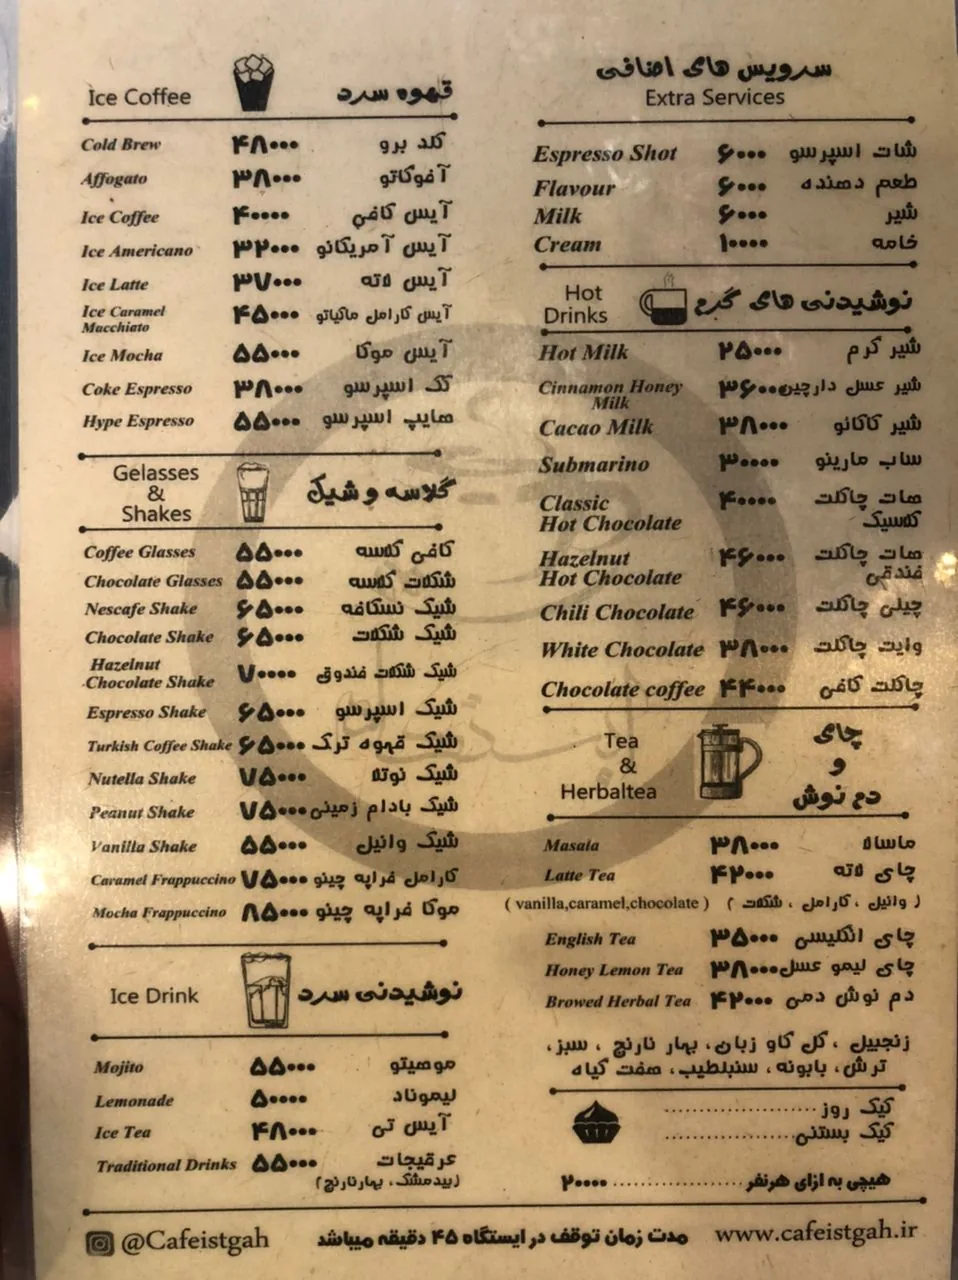 Ice Coffee قهوه سرد
Cold Brew ۴۸۰۰۰ کلد برو
Affogato ۳۸۰۰۰ آفوگاتو
Ice Coffee ۴۰۰۰۰ آیس کافی
Ice Americano ۳۲۰۰۰ آیس آمریکانو
Ice Latte ۳۷۰۰۰ آیس لاته
Ice Caramel
Macchiato ۴۵۰۰۰ آیس کارامل ماکیاتو
Ice Mocha ۵۵۰۰۰ آیس موکا
Coke Espresso ۳۸۰۰۰ کک اسپرسو
Hype Espresso ۵۵۰۰۰ هایپ اسپرسو
Gelasses
&
Shakes
گلاسه و شیک
Coffee Glasses ۵۵۰۰۰ کافی گلاسه
Chocolate Glasses ۵۵۰۰۰ شکلات گلاسه
Nescafe Shake ۶۵۰۰۰ شیک نسکافه
Chocolate Shake ۶۵۰۰۰ شیک شکلات
Hazelnut
Chocolate Shake ۷۰۰۰۰ شیک شکلات فندوق
Espresso Shake ۶۵۰۰۰ شیک اسپرسو
Turkish Coffee Shake ۶۵۰۰۰ شیک قهوه ترک
Nutella Shake ۷۵۰۰۰ شیک نوتلا
Peanut Shake ۷۵۰۰۰ شیک بادام زمینی
Vanilla Shake ۵۵۰۰۰ شیک وانیل
Caramel Frappuccino ۷۵۰۰۰ کارامل فراپه چینو
Mocha Frappuccino ۸۵۰۰۰ موکا فراپه چینو
Ice Drink نوشیدنی سرد
Mojito ۵۵۰۰۰ موهیتو
Lemonade ۵۰۰۰۰ لیموناد
Ice Tea ۴۸۰۰۰ آیس تی
Traditional Drinks ۵۵۰۰۰ عرقیجات
(بیدمشک، بهارنارنج)
سرویس های اضافی
Extra Services
Espresso Shot ۶۰۰۰ شات اسپرسو
Flavour ۶۰۰۰ طعم دهنده
Milk ۶۰۰۰ شیر
Cream ۱۰۰۰۰ خامه
Hot
Drinks
نوشیدنی های گرم
Hot Milk ۲۵۰۰۰ شیر گرم
Cinnamon Honey
Milk ۳۶۰۰۰ شیر عسل دارچین
Cacao Milk ۳۸۰۰۰ شیر کاکائو
Submarino ۳۰۰۰۰ ساب مارینو
Classic
Hot Chocolate ۴۰۰۰۰ هات چاکلت
کلاسیک
Hazelnut
Hot Chocolate ۴۶۰۰۰ هات چاکلت
فندقی
Chili Chocolate ۴۶۰۰۰ چیلی چاکلت
White Chocolate ۳۸۰۰۰ وایت چاکلت
Chocolate coffee ۴۴۰۰۰ چاکلت کافی
Tea
&
Herbaltea
چای
و
دم نوش
Masala ۳۸۰۰۰ ماسالا
Latte Tea ۴۲۰۰۰ چای لاته
( vanilla,caramel,chocolate ) ( وانیل ، کارامل ، شکلات )
English Tea ۳۵۰۰۰ چای انگلیسی
Honey Lemon Tea ۳۸۰۰۰ چای لیمو عسل
Browed Herbal Tea ۴۲۰۰۰ دم نوش دمی
زنجبیل ، گل گاو زبان، بهار نارنج ، سبز،
ترش، بابونه ، سنبلطیب، هفت گیاه
کیک روز ....................
کیک بستنی....................
هیچی به ازای هرنفر ....................۲۰۰۰۰
@Cafeistgah مدت زمان توقف در ایستگاه ۴۵ دقیقه میباشد www.cafeistgah.ir